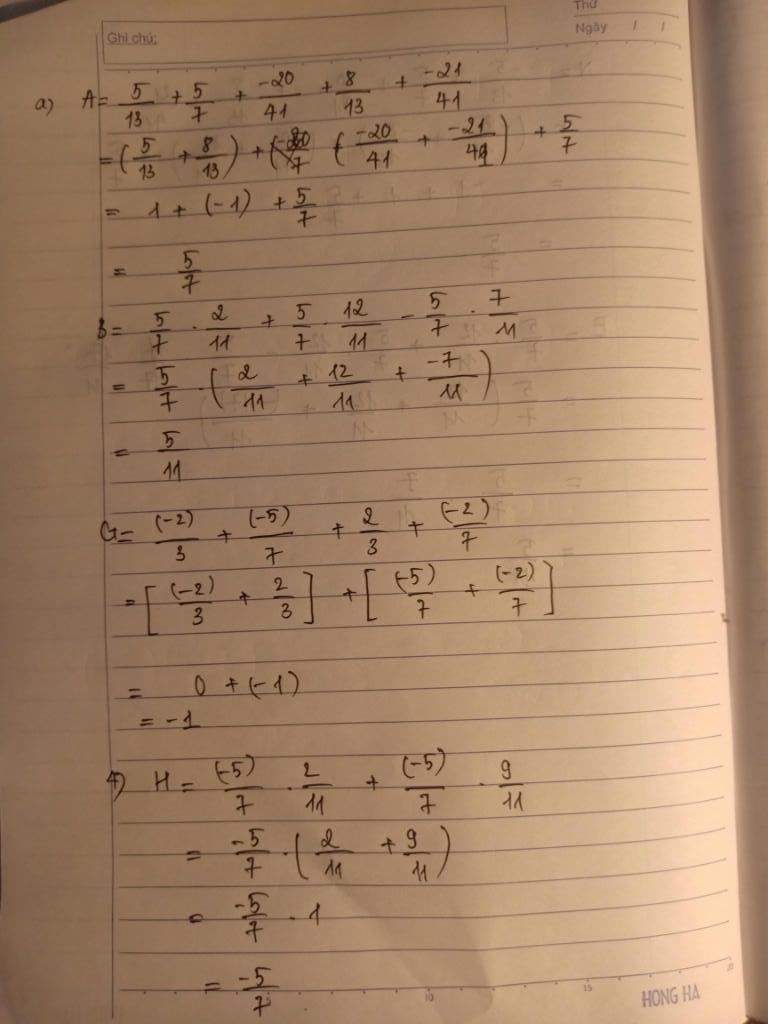 Thứ
Ghi chú:
Ngày / /
a) A = 5/13 + 5/7 + -20/41 + 8/13 + -21/41
= (5/13 + 8/13) + (-20/41 + -21/41) + 5/7
= 1 + (-1) + 5/7
= 5/7
B = 5/7 . 2/11 + 5/7 . 12/11 - 5/7 . 7/11
= 5/7 . (2/11 + 12/11 + -7/11)
= 5/11
G = (-2)/3 + (-5)/7 + 2/3 + (-2)/7
= [(-2)/3 + 2/3] + [(-5)/7 + (-2)/7]
= 0 + (-1)
= -1
4) H = (-5)/7 . 2/11 + (-5)/7 . 9/11
= -5/7 . (2/11 + 9/11)
= -5/7 . 1
= -5/7
5 10 15 20
HONG HA